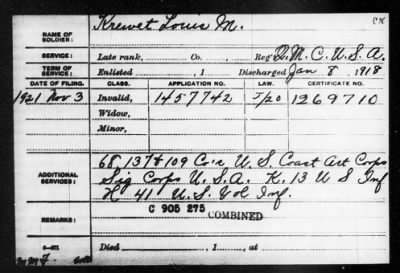 Krewet Louis M.
CK
NAME OF SOLDIER:
SERVICE: Late rank, Co. , Reg't Q. M. C. U. S. A.
TERM OF SERVICE: Enlisted , 1 Discharged Jan 8 , 1918
DATE OF FILING. CLASS. APPLICATION NO. LAW. CERTIFICATE NO.
1921 Nov 3 Invalid, 1457742 J/20 1269710
Widow,
Minor,
ADDITIONAL SERVICES:
68, 137 & 109 Co's U. S. Coast Art Corps
Sig Corps U. S. A. K. 13 U S Inf
H 41 U. S. Vol Inf.
C 905 275
COMBINED
REMARKS:
Died , 1 , at